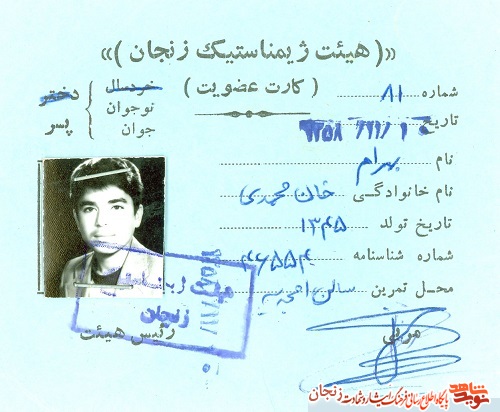 «( هیئت ژیمناستیک زنجان )»
( کارت عضویت )
شماره ۸۱
خردسال
نوجوان
جوان
دختر
پسر
تاریخ
نام بهرام
نام خانوادگی خان محمدی
تاریخ تولد ۱۳۴۵
شماره شناسنامه ۴۶۵۵۴
محل تمرین سالن
رئیس هیئت
مربی
زنجان
نوید شاهد
پایگاه اطلاع رسانی فرهنگ ایثار و شهادت زنجان